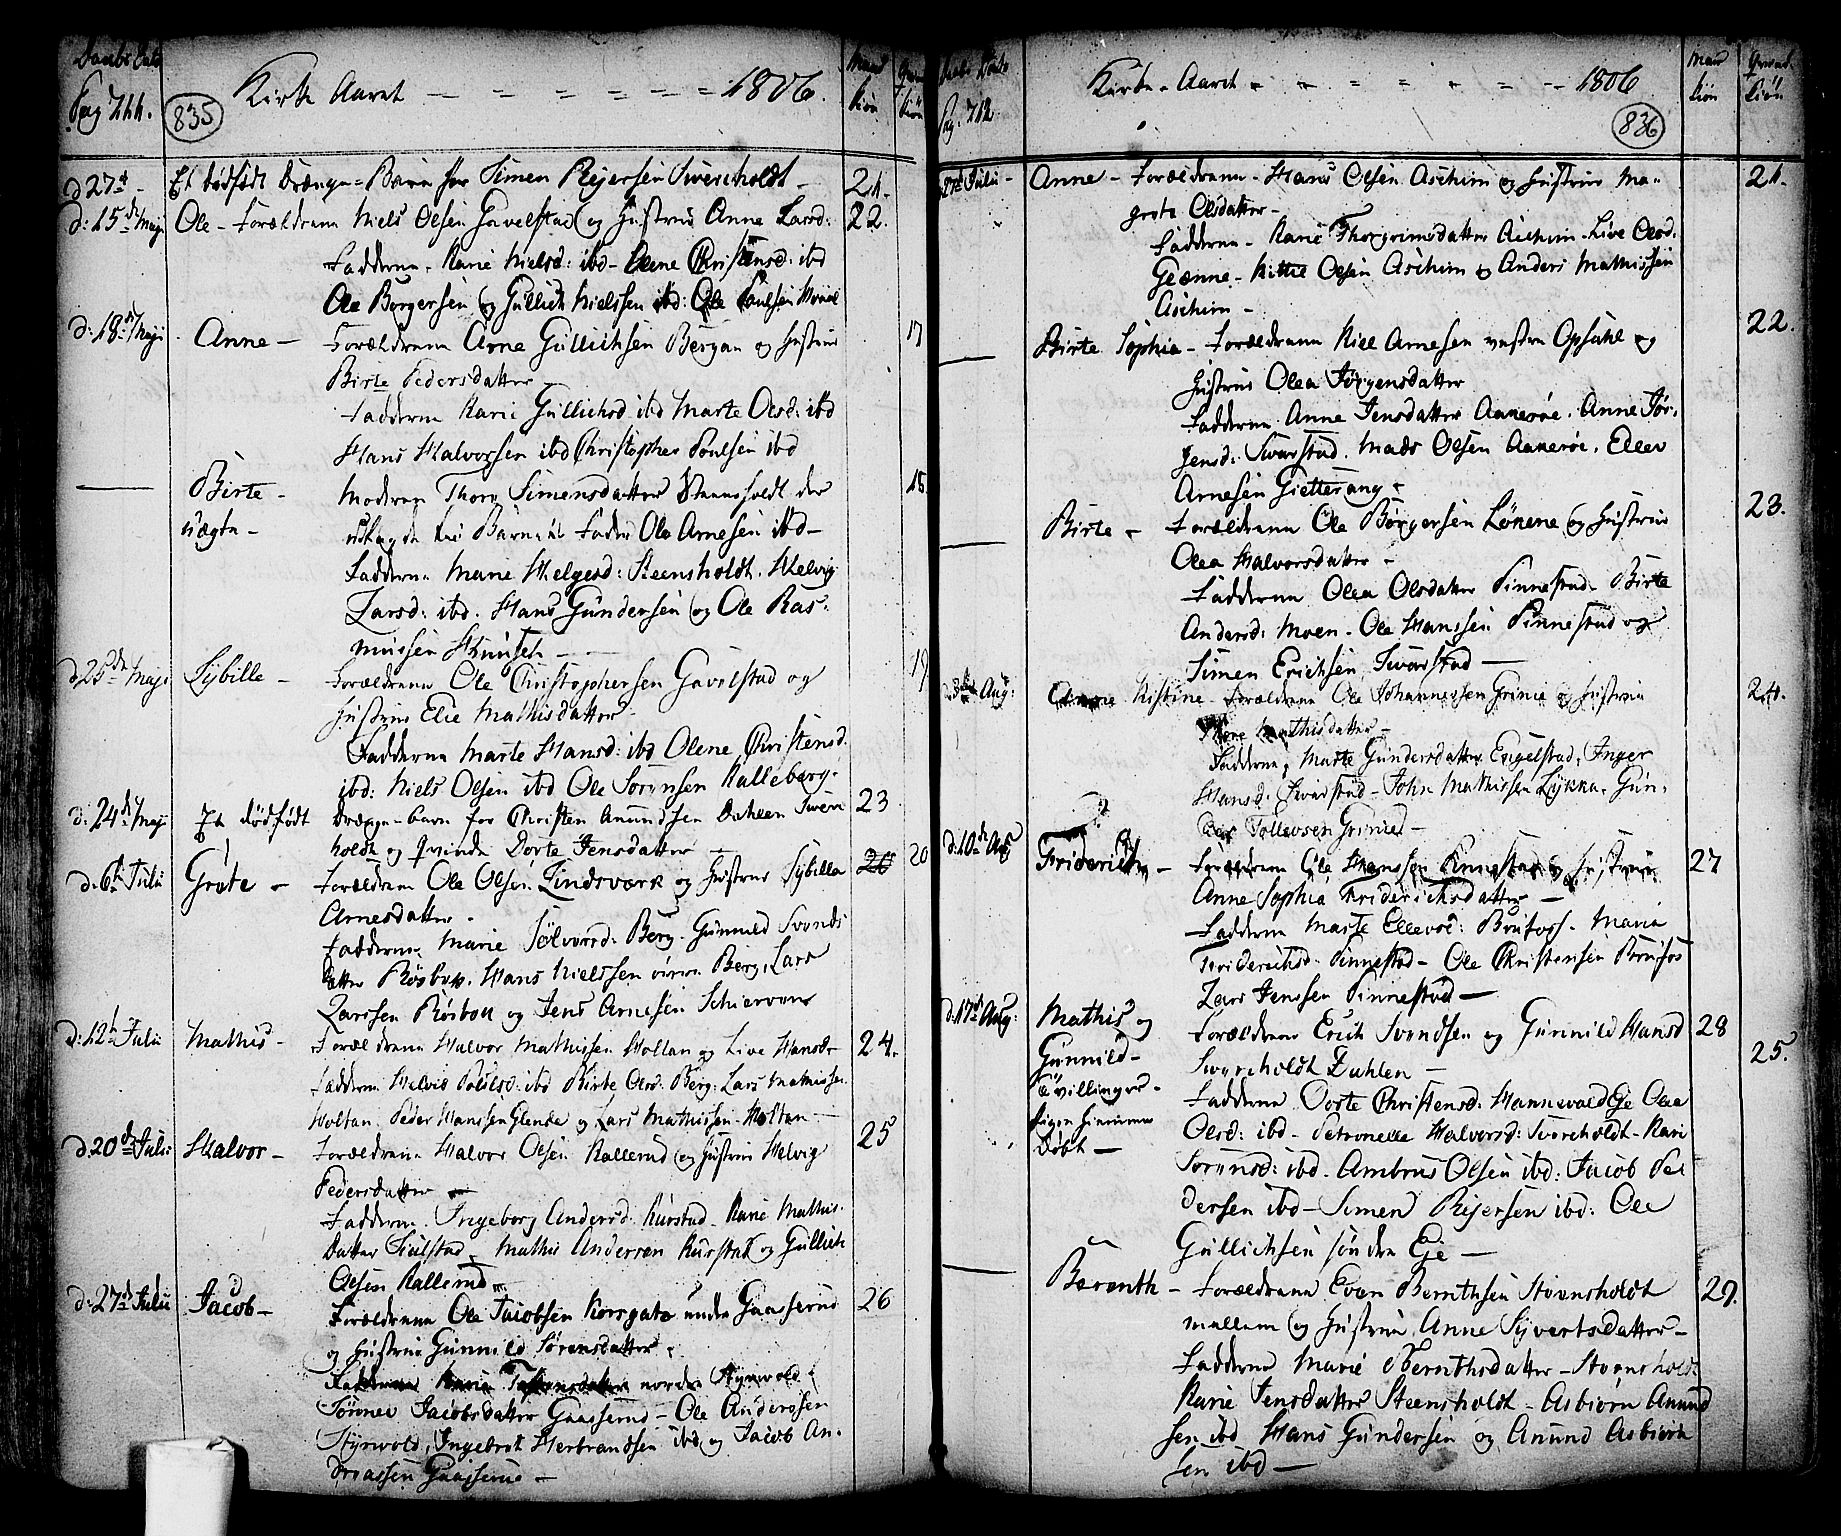 Daabs Dato
Pag 711.
835
Kirke Aaret 1806.
Mand
kiøn
Qvind
kiøn
d 27de Et dødfødt Drænge-Barn for Simen Rejersen Sverholdt 21.
d: 15de Maji Ole - Forældrene Niels Olsen Gavelstad og Hustrue Anne Larsd: 22.
Fadderne - Karie Nielsd: ibd - Olene Christensd: ibd
Ole Borgersen og Gullich Nielssen ibd: Ole Poulsen
d: 18de Maji Anne - Forældrene Arne Gullichsen Bergan og Hustrue 17
Birte Pedersdatter -
Fadderne Karie Gullichsd ibd Marte Olsd: ibd
Hans Halvorsen ibd Christopher Poulsen ibd
Birte - Moderen Thore Simensdatter Steensholdt der 18.
uægte - udlagde til Barnets Fader Ole Arnesen ibd -
Fadderne Marie Helgesd: Steensholdt. Helvig
Larsd: ibd. Hans Gundersen og Ole Ras-
mussen
d 25de Maji Sybille - Forældrene Ole Christophersen Gavelstad og 19
Hustrue Elie Mathisdatter -
Fadderne Marte Hansd: ibd Olene Christensd.
ibd: Niels Olsen ibd Ole Sørensen Kalleberg.
d: 24de Maji Et dødfødt Drænge-barn for Christen Anundsen Dahlen Sver 23
holdt og Qvinde Dorte Jensdatter -
d: 6te Julii Grete - Forældrene Ole Olsen Lindsværk og Hustrue Sybille 20 20
Arnesdatter -
Fadderne Marie Sølversd: Berg. Gunnild Svends
datter Røsbye. Hans Nielssen øvre Berg, Lars
Larssen Røsbye og Jens Arnesen Schierven
d: 12te Julii Mathis - Forældrene Halvor Mathissen Holtan og Live Hansdr 24.
Fadderne Helvig Poulsd: ibd Birte Olsd: Berg: Lars Mathissen
Holtan. Peder Hanssen Glende og Lars Mathissen Holtan -
d. 20de Julii Halvor - Forældrene Halvor Olsen Kallerud og Hustrue Helvig 25
Pedersdatter -
Fadderne. Ingeborg Andersd: Kurstad - Karie Mathis
datter - Mathis Andersen Kurstad og Gullich
Olsen Kallerud -
d: 27de Julii Jacob - Forældrene Ole Jacobsen Korsgata under Gaasserud 26
og Hustrue Gunnild Sørensdatter.
Fadderne Karie nordre Styrvold
Tønnes Jacobsdatter Gaasserud - Ole Anderssen
Styrvold, Ingebret Herbrandsen ibd og Jacob An-
dreassen Gaasserud -
Daabs Dato
Pag. 712
Kirke - Aaret 1806
836
Mand
kiøn
Qvind
kiøn
27de Julii - Anne - Forældrene - Hans Olsen Aschim og Hustrue Ma- 21.
grete Olsdatter -
Fadderne - Karie Thorgrimsdatter Aschim - Live Olsd.
Giønne - Kittil Olsen Aschim og Anders Mathissen
Aschim -
Birte Sophia - Forældrene Kiel Arnesen vestre Opsahl og 22.
Hustrue Olea Jørgensdatter
Fadderne - Anne Jensdatter Aakerøe. Anne Jør-
gensd: Svarstad. Mads Olsen Aakerøe. Ellev
Arnesen Gietterang -
Birte - Forældrene Ole Børgersen Lønene og Hustrue 23.
Olea Halvorsdatter -
Fadderne Olea Olsdatter Pinnestad - Birte
Andersd: Moen - Ole Hanssen Pinnestad og
Simen Erichsen Svarstad -
Aug: Anne Kistine - Forældrene Ole Johannessen Grinie og Hustrue 24.
Mathisdatter -
Fadderne, Marte Gundersdatter Engelstad, Inger
Hansd: Svarstad - John Mathissen Lykka - Gun-
der Tollevsen Grinie -
d. 10de Aug Friderich - Forældrene Ole Hanssen Pinnestad og Hustrue 27
Anne Sophia Friderichsdatter -
Fadderne Marte Ellevsd: Brufoss - Maria
Friderichsd: Pinnestad - Ole Christensen Brufos
Lars Jenssen Pinnestad -
d. 17de Aug: Mathis og Forældrene Erich Svendsen og Gunnild Hansd 28
Gunnild - Sverholdt Dahlen - 25.
Tvillinger - Fadderne Dorte Christensd: Hannevold Eje Olea
Hjemme Olsd: ibd - Petronelle Halvorsd: Sverholdt - Kari
Døbt - Sørensd: ibd - Ambrus Olsen ibd: Jacob Pe
dersen ibd - Simen Rejersen ibd: Ole
Gullichsen søndre Eje -
Berenth - Forældrene Even Bernthsen Steensholdt 29.
mellem og Hustrue Anne Syvertsdatter -
Fadderne Marie Bernthsdatter - Steensholdt
Karie Jensdatter Steensholdt - Asbiørn Anund
sen ibd Hans Gundersen og Anund Asbiørn
sen ibd -